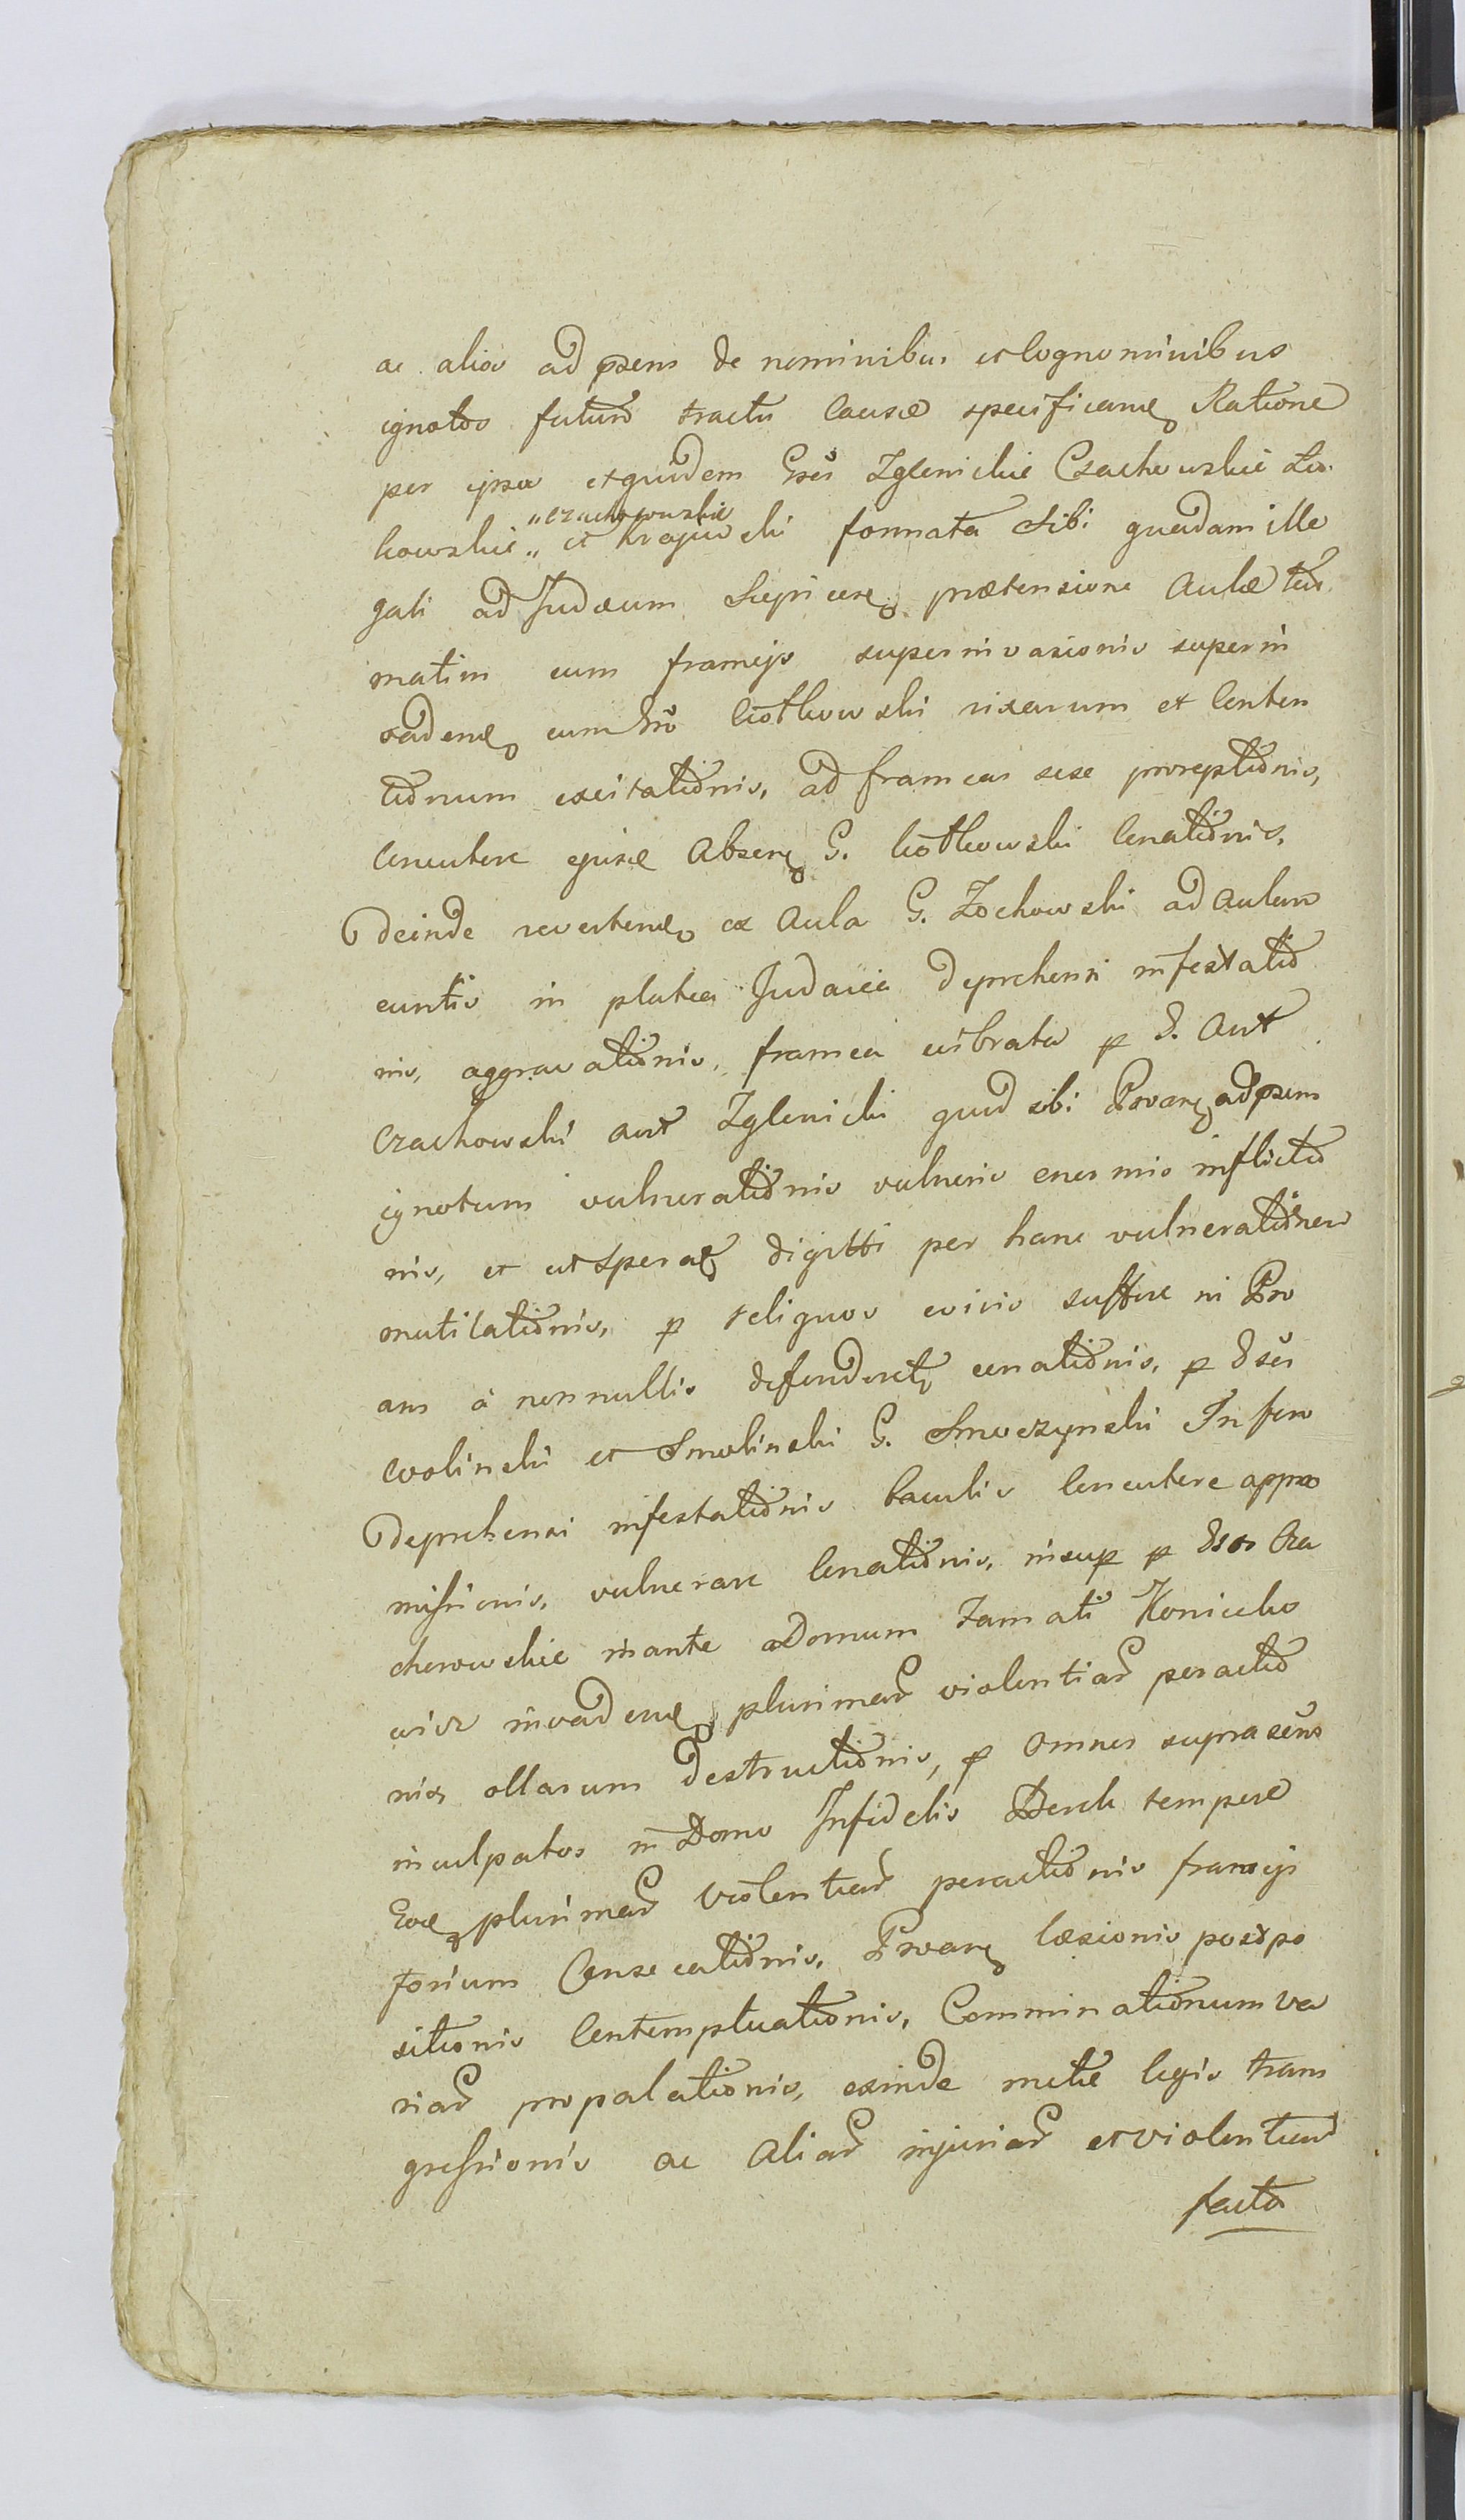 ac alios ad psens de nominibus et Cognominibus
ignotos futuro tractu Causæ specificand Ratione
per ipsos et quidem Gsos Zglenickie Czachowskie Lu
kowskie „ Czachowskie „ et Krajew ski formata Sibi quadam ille
gali ad Judæum prætensione Aulæ tu
matim cum framejs superinvasionis superin
vadend cum Gso Ciotkowski rixarum et Conten
tionum excitationis, ad frameas sese proreptionis,
Concutere ejusd Absen G. Ciotkowski Conationis,
Deinde revertend ex Aula G. Zochowski ad Aulam
euntis in platea Judaica Deprehensi infestatio
nis, aggravationis, framea vibrata p G. Aut
Czachowski aut Zglenicki quod sibi Provane ad psens
ignotum vulnerationis vulneris enormis inflictio
nis, et ut Sperat digitti per hanc vulnerationem
mutilationis, p reliquos evicis in Pro
ans à nonnullis defenderet conationis, p Gsos
Wolinski et Smolinski G. Smoczynski Infero
Deprehensi infestationis baculis Concutere appro
missionis, vulnerare Conationis, insup p Gsos Cza
chowskie inante Domum Famati Koniccko
wicz invadend plurimar violentiar peractio
nis ollarum Destructionis, p Omnes suprascrptos
inculpatos in Domo Infidelis Berek tempore
Eod plurimar Violentiar peractionis framejs
forium Consecationis, Provane læsionis postpo
sitionis Contemptuationis, Comminationum va
riar propalationis, exinde metæ legis trans
gressionis ac Aliar injuriar et violentiar
facta